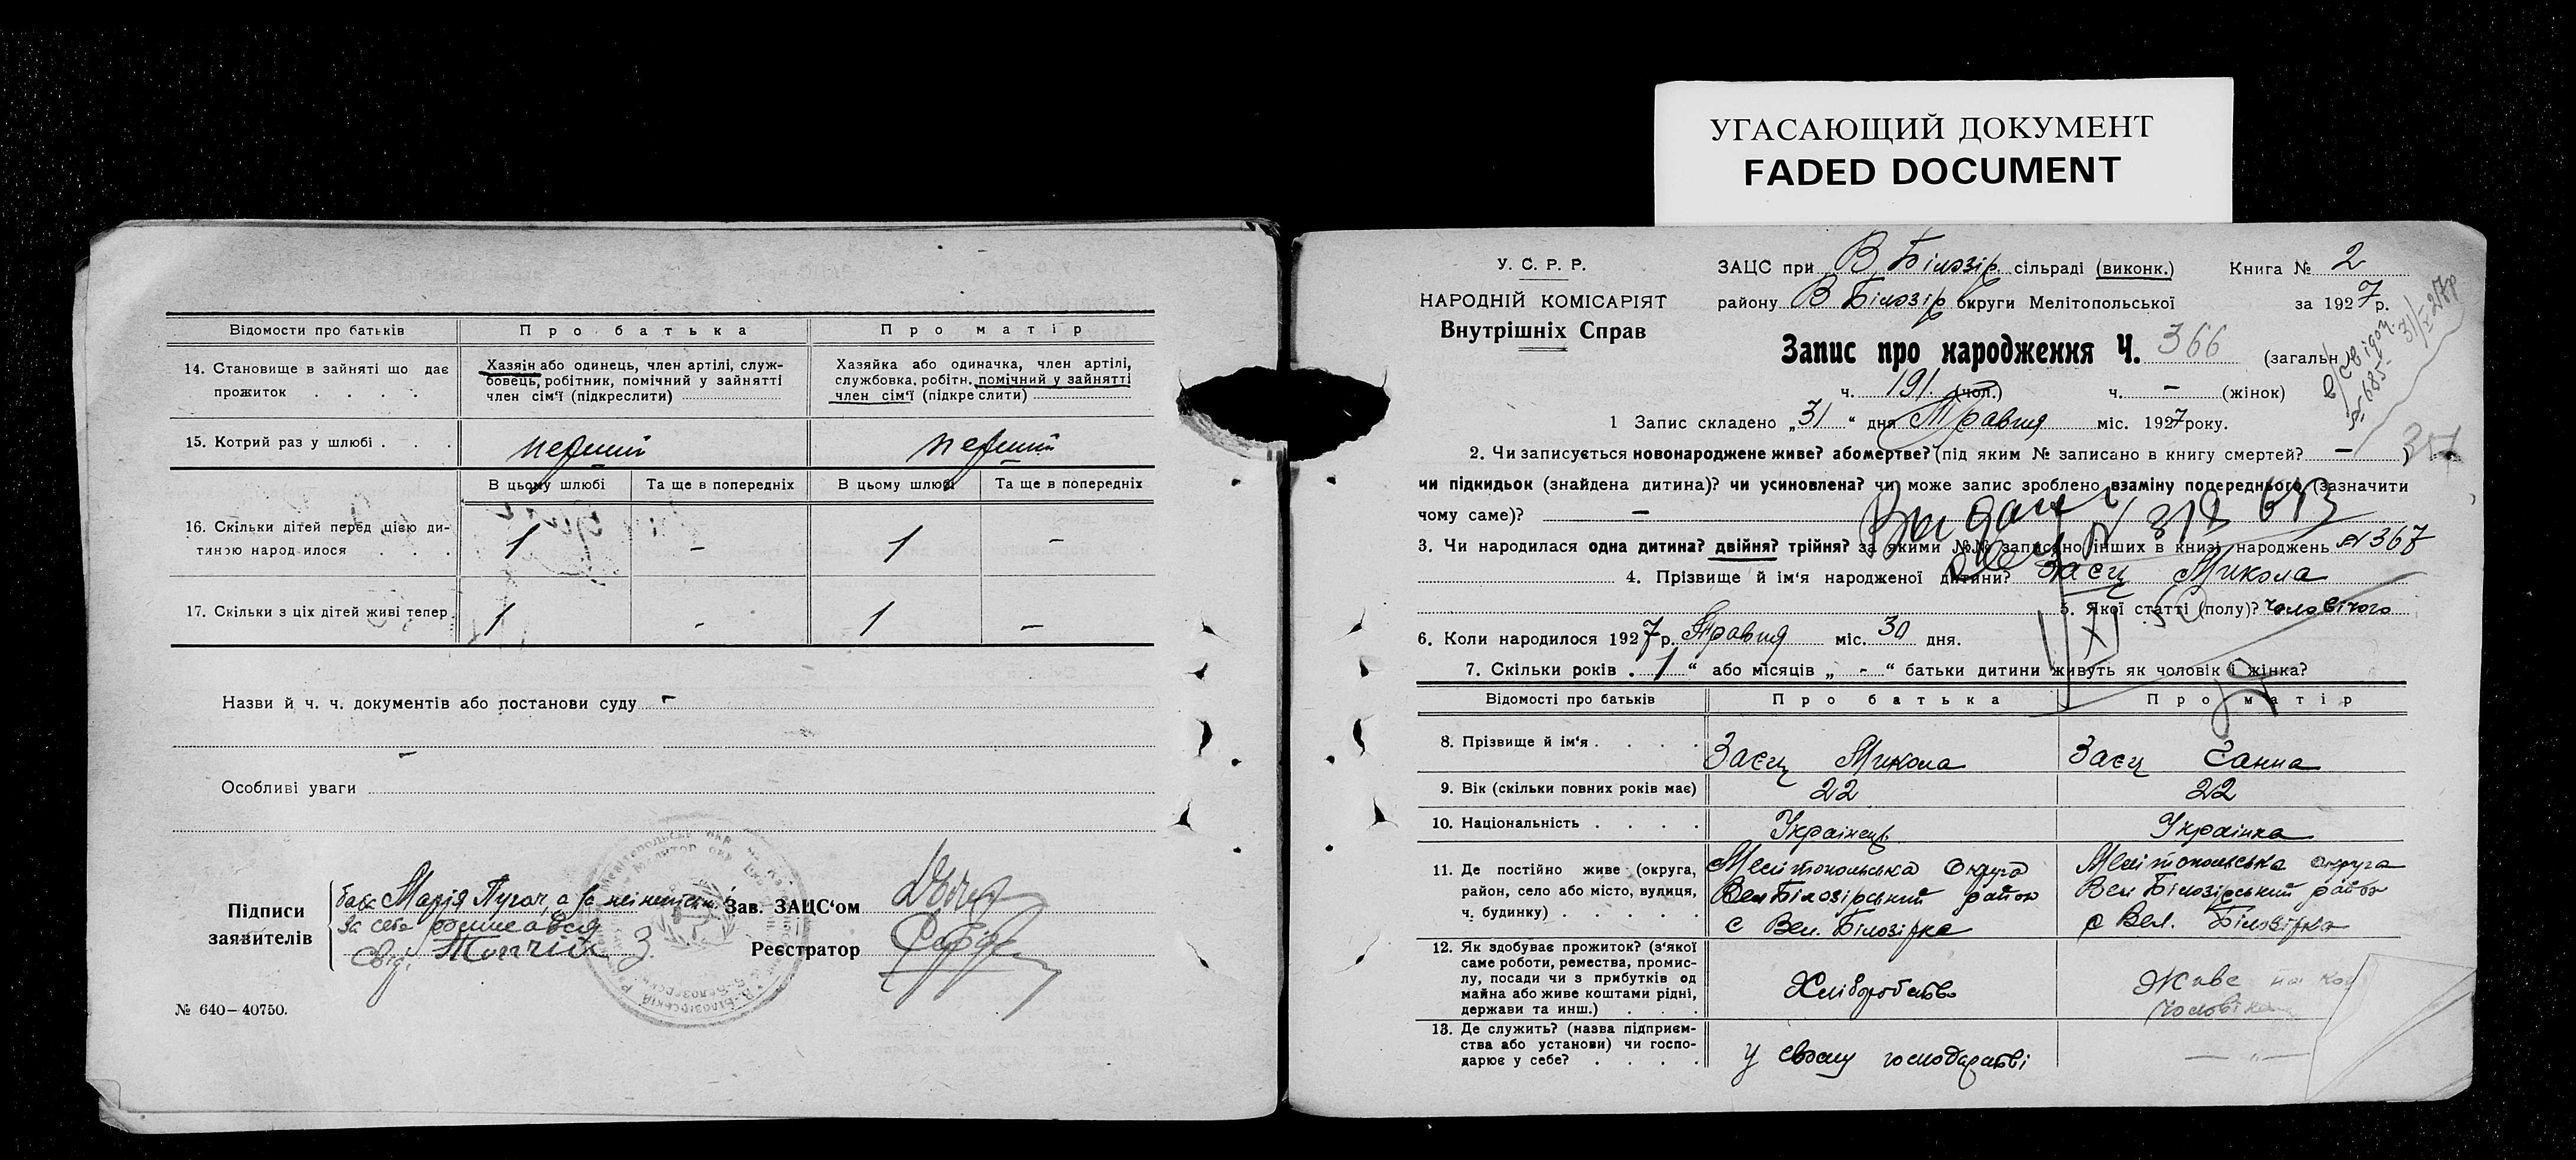 УГАСАЮЩИЙ ДОКУМЕНТ
FADED DOCUMENT
Відомости про батьків Про батька Про матір
14. Становище в зайняті що дає прожиток . . . .
Хазяін або одинець, член артілі, служ-
бовець, робітник, помічний у зайнятті
член сім'ї (підкреслити)
Хазяйка або одиначка, член артілі,
службовка, робітн. помічний у зайнятті
член сім'ї (підкреслити)
15. Котрий раз у шлюбі . . . перший перший
В цьому шлюбі Та ще в попередніх В цьому шлюбі Та ще в попередніх
16. Скільки дітей перед цією ди-
тиною народилося . . . 1 - 1 -
17. Скільки з ціх дітей живі тепер. 1 - 1 -
Назви й ч. ч. документів або постанови суду -
-
Особливі уваги
Підписи
заявителів
Марія Пугач, а за
за себе
Свід.
Зав. ЗАЦС'ом
Реєстратор
№ 640—40750.
У. С. Р. Р.
НАРОДНІЙ КОМІСАРІЯТ
Внутрішніх Справ
ЗАЦС при В. Білозір. сільраді (виконк.) Книга № 2
району В Білозір округи Мелітопольської за 1927 р.
Запис про народження Ч. 366 (загальн
ч. 191 (чол.) ч. - (жінок)
№ 685
1 Запис складено „31" дня Травня міс. 1927 року.
2. Чи записується новонароджене живе? або мертве? (під яким № записано в книгу смертей? —
чи підкидьок (знайдена дитина)? чи усиновлена? чи може запис зроблено взаміну попереднього (зазначити
чому саме)? —
3. Чи народилася одна дитина? двійня? трійня? за якими №№ записано інших в книзі народжень № 367
4. Прізвище й ім'я народженої дитини? Заєц Микола
5. Якої статті (полу)? чоловічого
6. Коли народилося 1927 р. Травня міс. 30 дня.
7. Скільки років . 1 " або місяців „ - " батьки дитини живуть як чоловік і жінка?
Відомості про батьків Про батька Про матір
8. Прізвище й ім'я . . . . Заєц Микола Заєц Ганна
9. Вік (скільки повних років має) 22 22
10. Національність . . . . Українець Українка
11. Де постійно живе (округа,
район, село або місто, вулиця,
ч. будинку) . . . . .
Мелітопольська округа
Вел Білозірський район
с Вел. Білозірка
Мелітопольська округа
Вел Білозірський район
с Вел. Білозірка
12. Як здобуває прожиток? (з'якої
саме роботи, ремества, промис-
лу, посади чи з прибутків од
майна або живе коштами рідні,
держави та инш.) . . .
Хліборобство
Живе на
чоловіка
13. Де служить? (назва підприєм-
ства або установи) чи госпо-
дарює у себе? . . . .
У своєму господарстві
— „ —